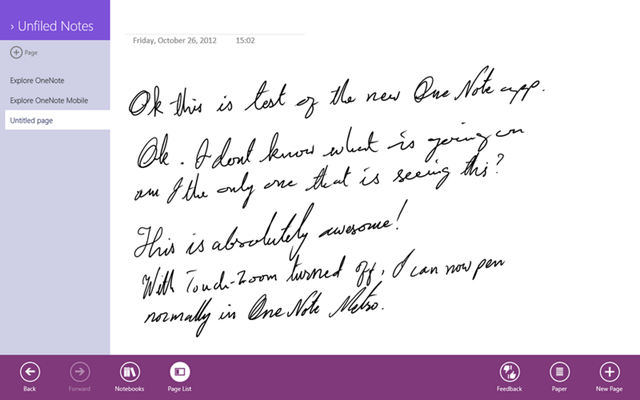 › Unfiled Notes
Page
Explore OneNote
Explore OneNote Mobile
Untitled page
Friday, October 26, 2012 15:02
Ok this is test of the new One Note app.
Ok. I dont know what is going on
am I the only one that is seeing this?
This is absolutely awesome!
With Touch-Zoom turned off, I can now pen
normally in One Note Metro.
Back
Forward
Notebooks
Page List
Feedback
Paper
New Page